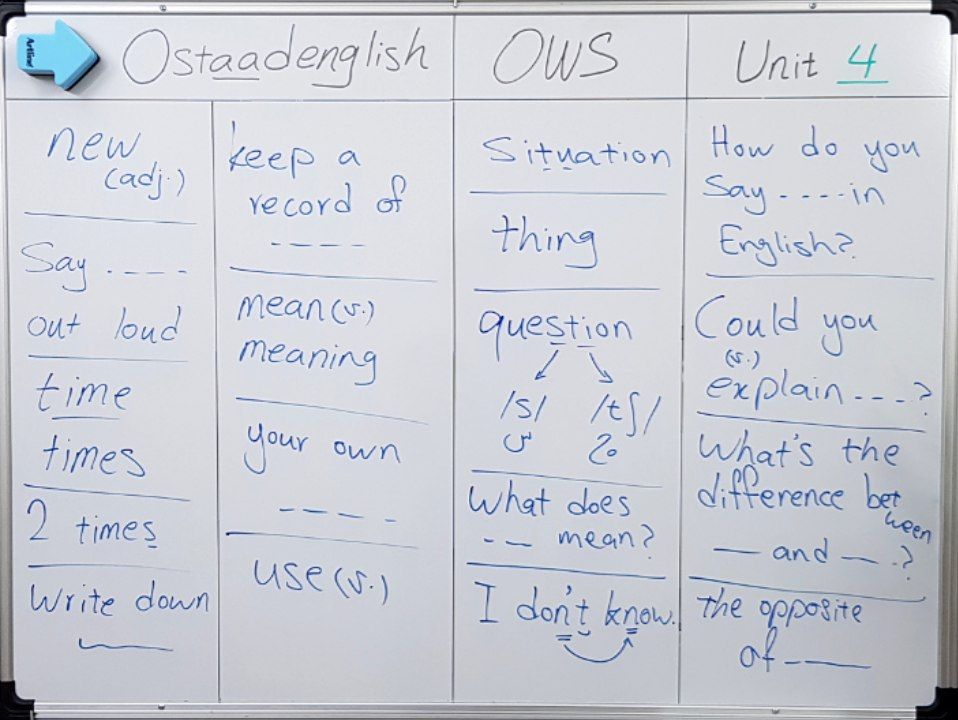 Artline
Ostaadenglish
OWS
Unit 4
new
(adj.)
Say ----
out loud
time
times
2 times
Write down
keep a
record of
----
mean (v.)
meaning
your own
----
use (v.)
Situation
thing
question
/s/ /tʃ/
What does
-- mean?
I don't know.
How do you
Say ---- in
English?
Could you
(v.)
explain ---- ?
What's the
difference between
— and — ?
the opposite
of ----